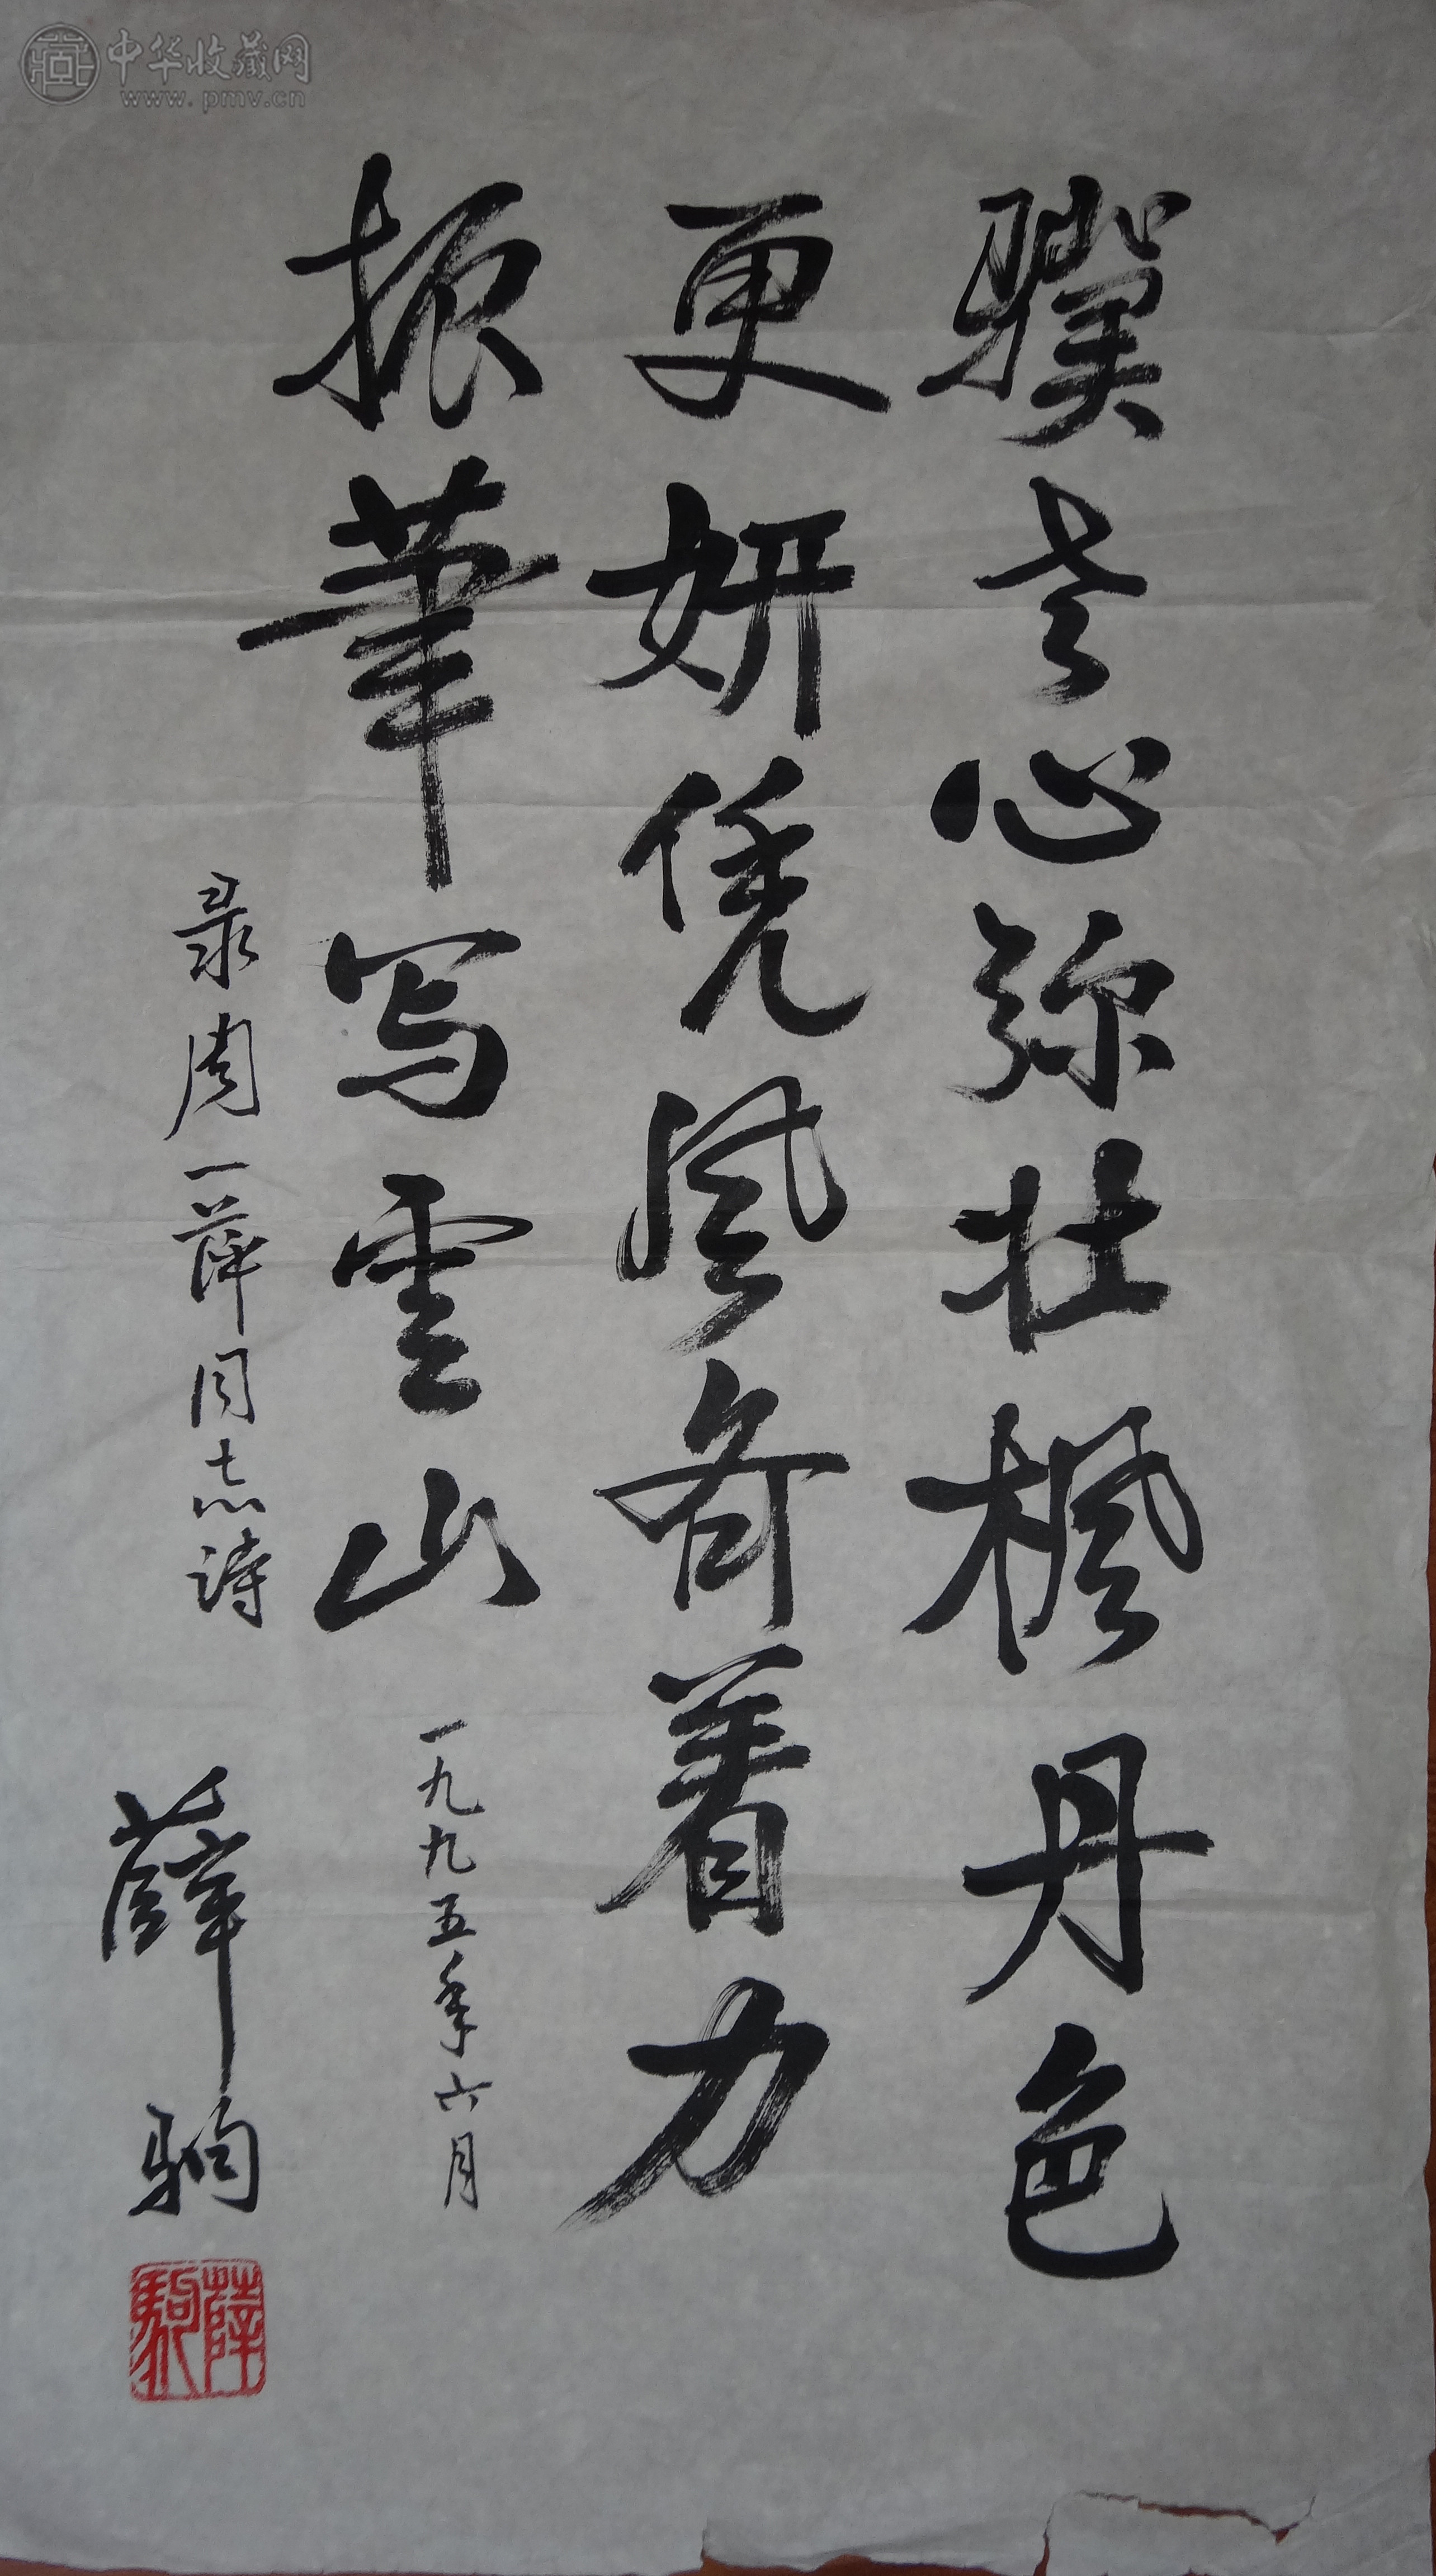 骥老心弥壮枫丹色
更妍凭风齐着力
振笔写雲山
一九九五年六月
录周一萍同志诗
薛驹
薛駒
中华收藏网
www.pmv.cn